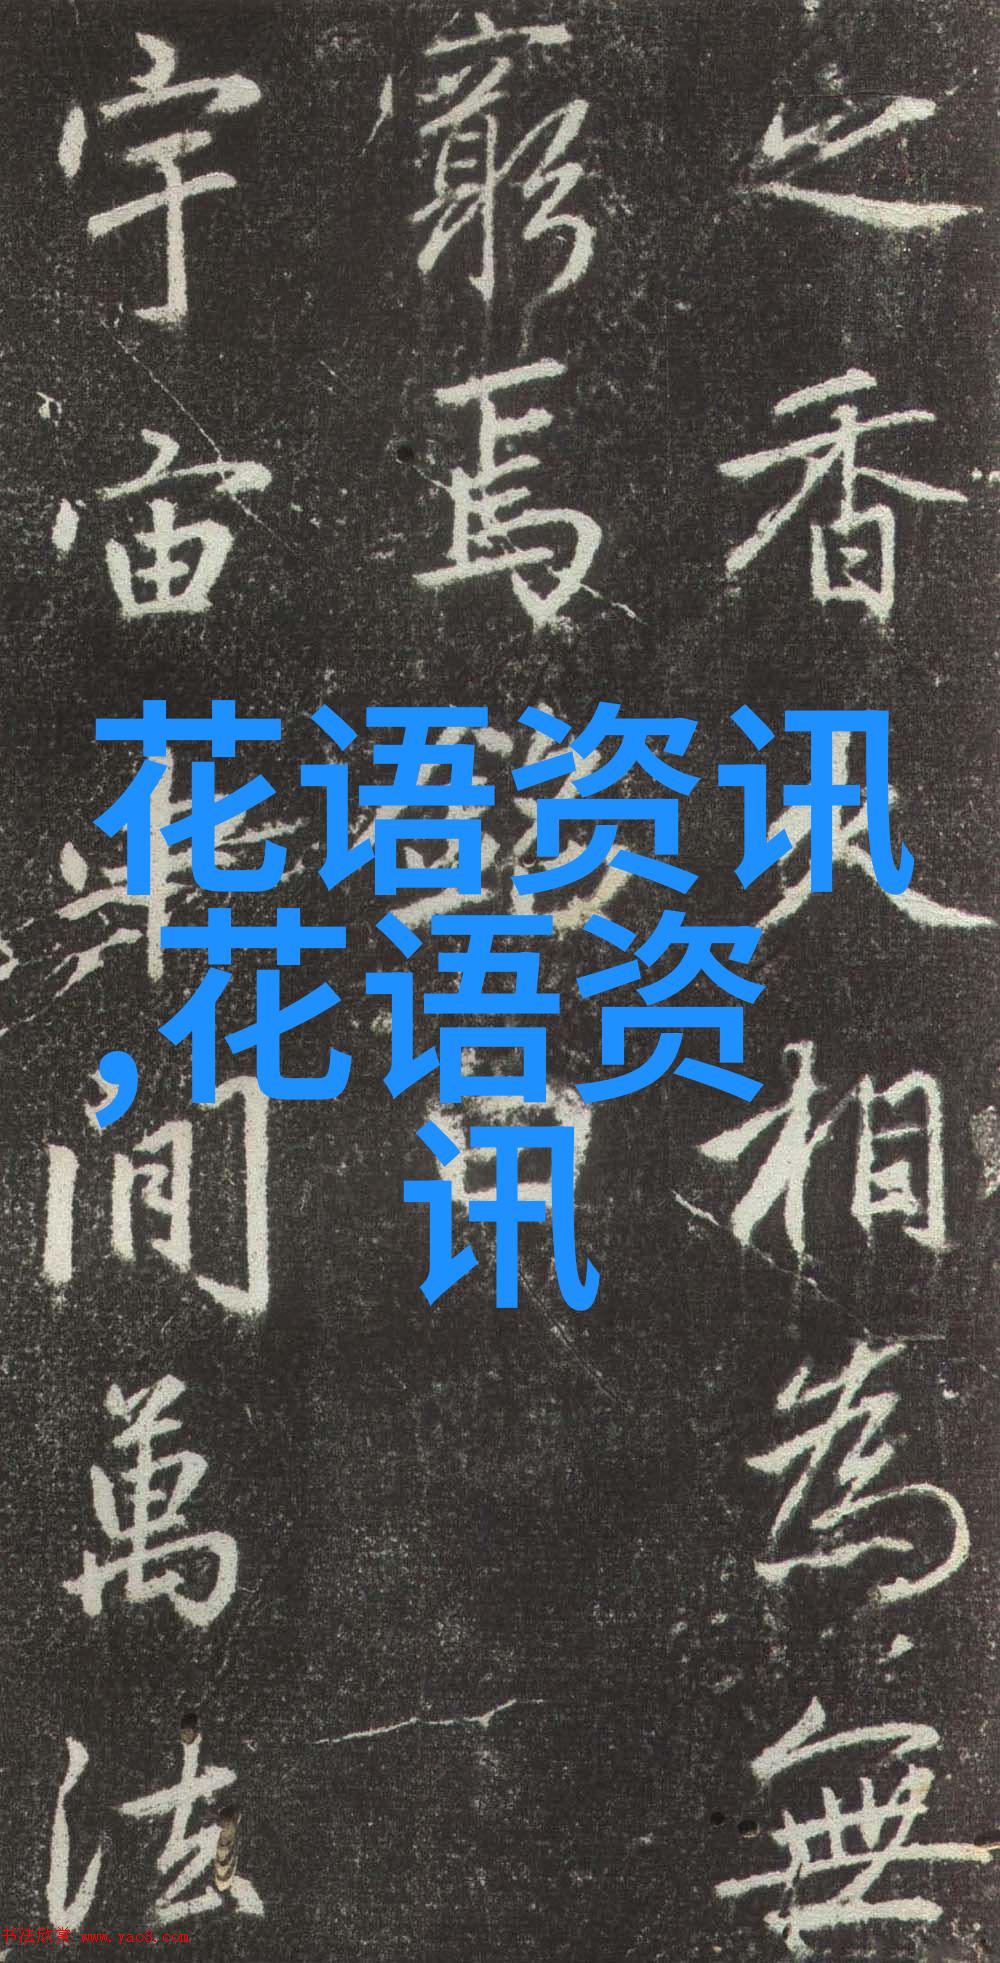 之香相為無
窮焉
宇宙間萬法
花语资讯
,花语资
讯
书法欣赏 www.yac8.com